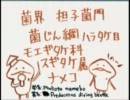 菌界 担子菌門
菌じん綱 ハラタケ目
モエギタケ科
スギタケ属
ナメコ